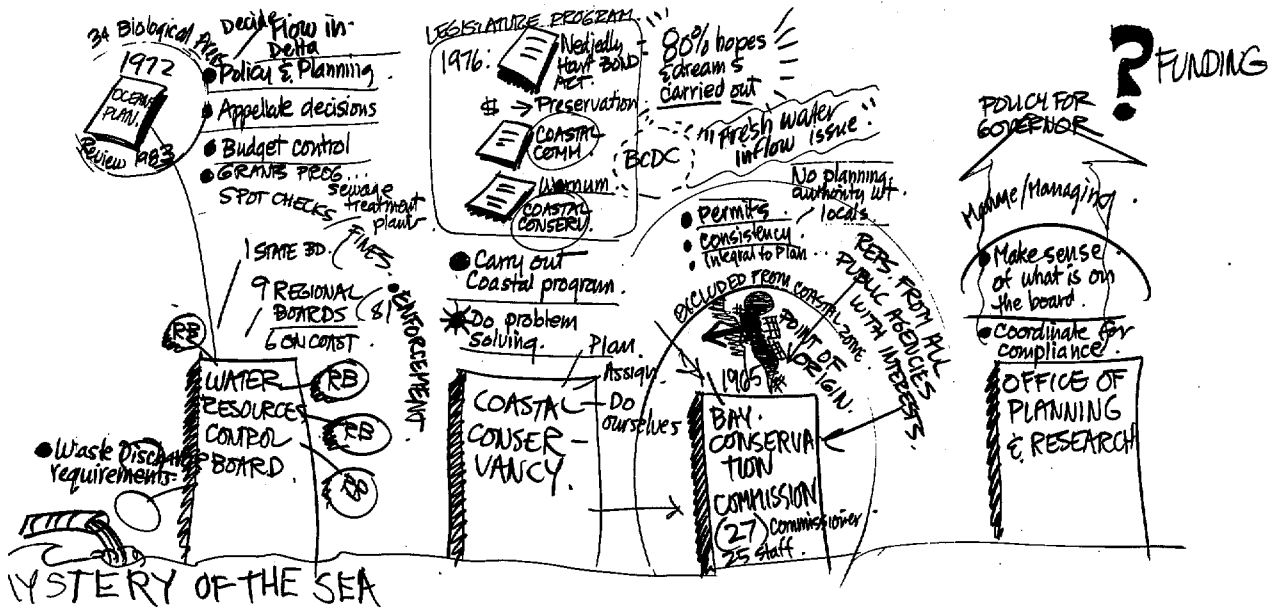 34 Biological Areas
1972
OCEAN
PLAN.
Review 1983
Decide Flow in
Delta
Policy & Planning
Appellate decisions
Budget control
GRANTS PROG...
SPOT CHECKS
sewage
treatment
plant
1 STATE BD.
9 REGIONAL
BOARDS
6 ON COAST
FINES
(81)
ENFORSEMENT
RB
WATER
RESOURCES
CONTROL
BOARD
RB
RB
RB
Waste Discharge
requirements
MYSTERY OF THE SEA
LEGISLATURE PROGRAM
1976:
Nedjedly
Hart BOND
ACT.
$ → Preservation
COASTAL
COMM.
COASTAL
CONSERV.
80% hopes
& dreams
Carried out
BCDC
Fresh water
inflow issue.
Carry out
Coastal program
Do problem
Solving.
Plan
Assign
Do
ourselves
COASTAL
CONSER-
VANCY.
No planning
authority wt.
locals
Permits
Consistency
Integral to Plan...
EXCLUDED FROM COASTAL ZONE
POINT OF
ORIGIN.
REPS. FROM ALL
PUBLIC AGENCIES
WITH INTERESTS.
1965
BAY
CONSERVA
TION
COMMISSION
(27) Commissioner
25 Staff.
? FUNDING
POLICY FOR
GOVERNOR
Manage/Managing
Make sense
of what is on
the board.
Coordinate for
compliance.
OFFICE OF
PLANNING
& RESEARCH